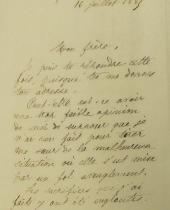 16 juillet 1885
Mon frère,
Je puis te répondre cette
fois puisque tu me donnes
ton adresse.
Peut-elle est-ce avoir
une trop faible opinion
de moi de supposer que je
n'ai rien fait pour tirer
ma sœur de la malheureuse
situation où elle s'est mise
par un fol aveuglement.
Les sacrifices que j'ai
faits y ont été engloutis.